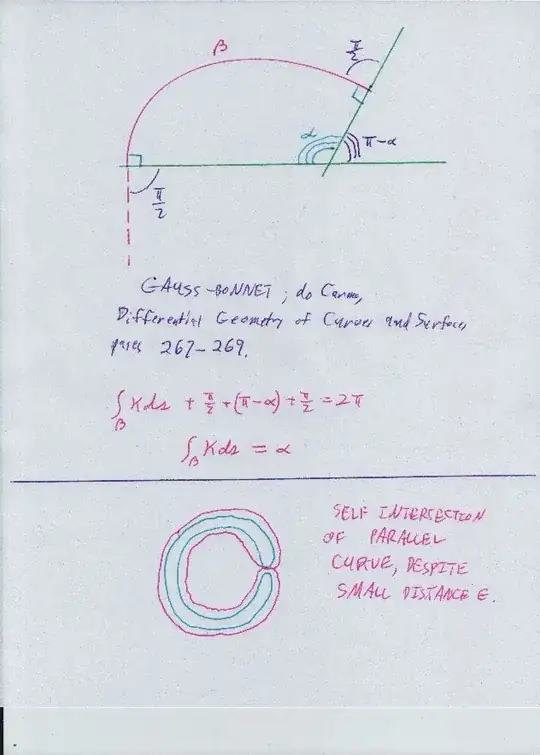 β
π/2
α
π-α
π/2
GAUSS-BONNET; do Carmo,
Differential Geometry of Curves and Surfaces,
pages 267-269.
∫_β K ds + π/2 + (π-α) + π/2 = 2π
∫_β K ds = α
SELF INTERSECTION
OF PARALLEL
CURVE, DESPITE
SMALL DISTANCE ε.